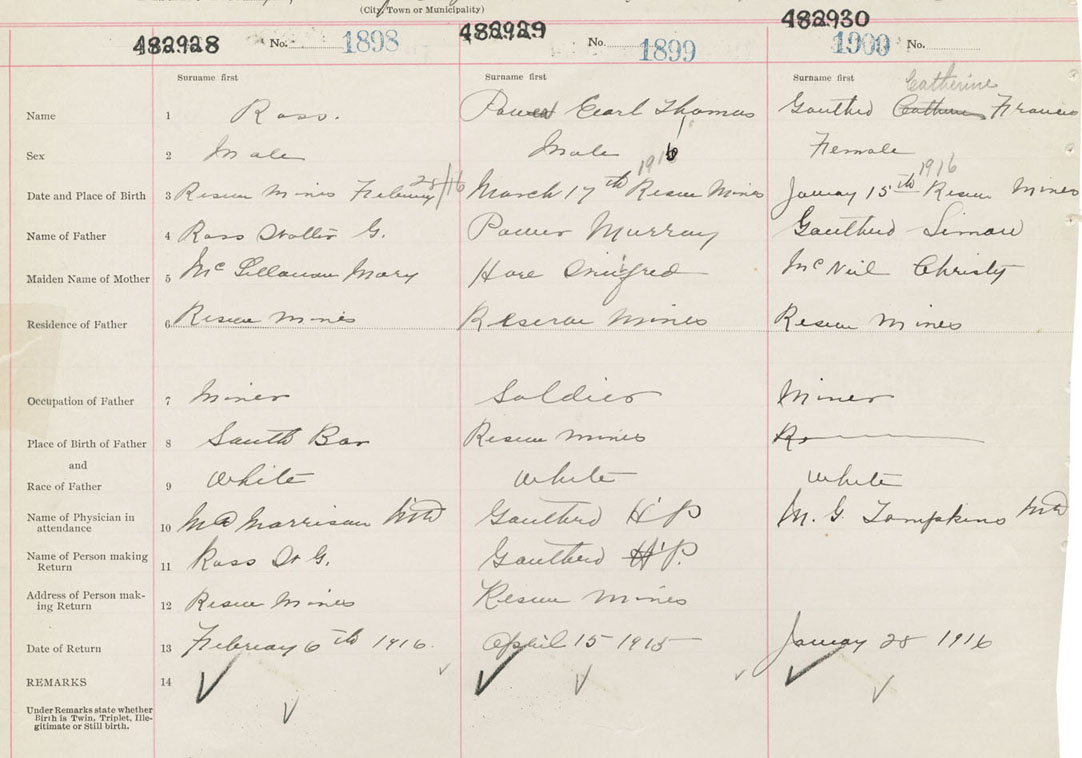 (City, Town or Municipality)
482928 No. 1898 482929 No. 1899 482930 1900 No.
Surname first Surname first Surname first
Catherine
Name 1 Ross. Power Earl Thomas Gouthro Francis
Sex 2 Male Male Female
1916 1916
Date and Place of Birth 3 Reserve Mines February 28/16 March 17th Reserve Mines January 15th Reserve Mines
Name of Father 4 Ross Walter G. Power Murray Gouthro Simon
Maiden Name of Mother 5 Mary Hore Winifred McNeil Christy
Residence of Father 6 Reserve Mines Reserve Mines Reserve Mines
Occupation of Father 7 Miner Soldier Miner
Place of Birth of Father 8 South Bar Reserve Mines R
and
Race of Father 9 White White White
Name of Physician in
attendance 10 Morrison MD Gouthro H P M. G. Tompkins MD
Name of Person making
Return 11 Ross W G. Gouthro H P.
Address of Person mak-
ing Return 12 Reserve Mines Reserve Mines
Date of Return 13 February 6th 1916. April 15 1915 January 28 1916
REMARKS 14
Under Remarks state whether
Birth is Twin, Triplet, Ille-
gitimate or Still birth.